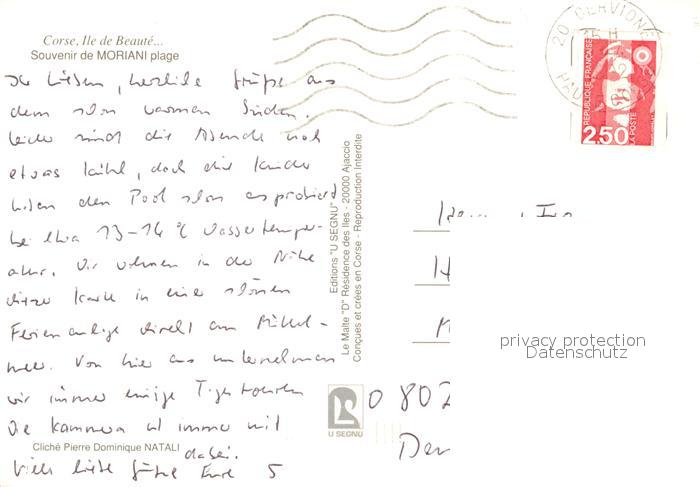 Corse, Ile de Beauté...
Souvenir de MORIANI plage
Ihr Lieben, herzliche Grüße aus
dem schon warmen Süden.
Leider sind die Abende noch
etwas kühl, doch die Kinder
haben den Pool schon ausprobiert
bei etwa 13-14 °C Wassertemper-
atur. Wir wohnen in der Nähe
dieser Karte in einer schönen
Ferienanlage direkt am Mittel-
meer. Von hier aus unternehmen
wir immer einige Tagestouren
Die Kamera ist immer mit
dabei.
Viele liebe Grüße Eure 5
Cliché Pierre Dominique NATALI
Editions "U SEGNU"
Le Malte "D" Résidence des Iles - 20000 Ajaccio
Conçues et créées en Corse - Reproduction Interdite
U SEGNU
20 CERVIONE
15 H
REPUBLIQUE FRANÇAISE
LA POSTE
2,50
0 802
privacy protection
Datenschutz